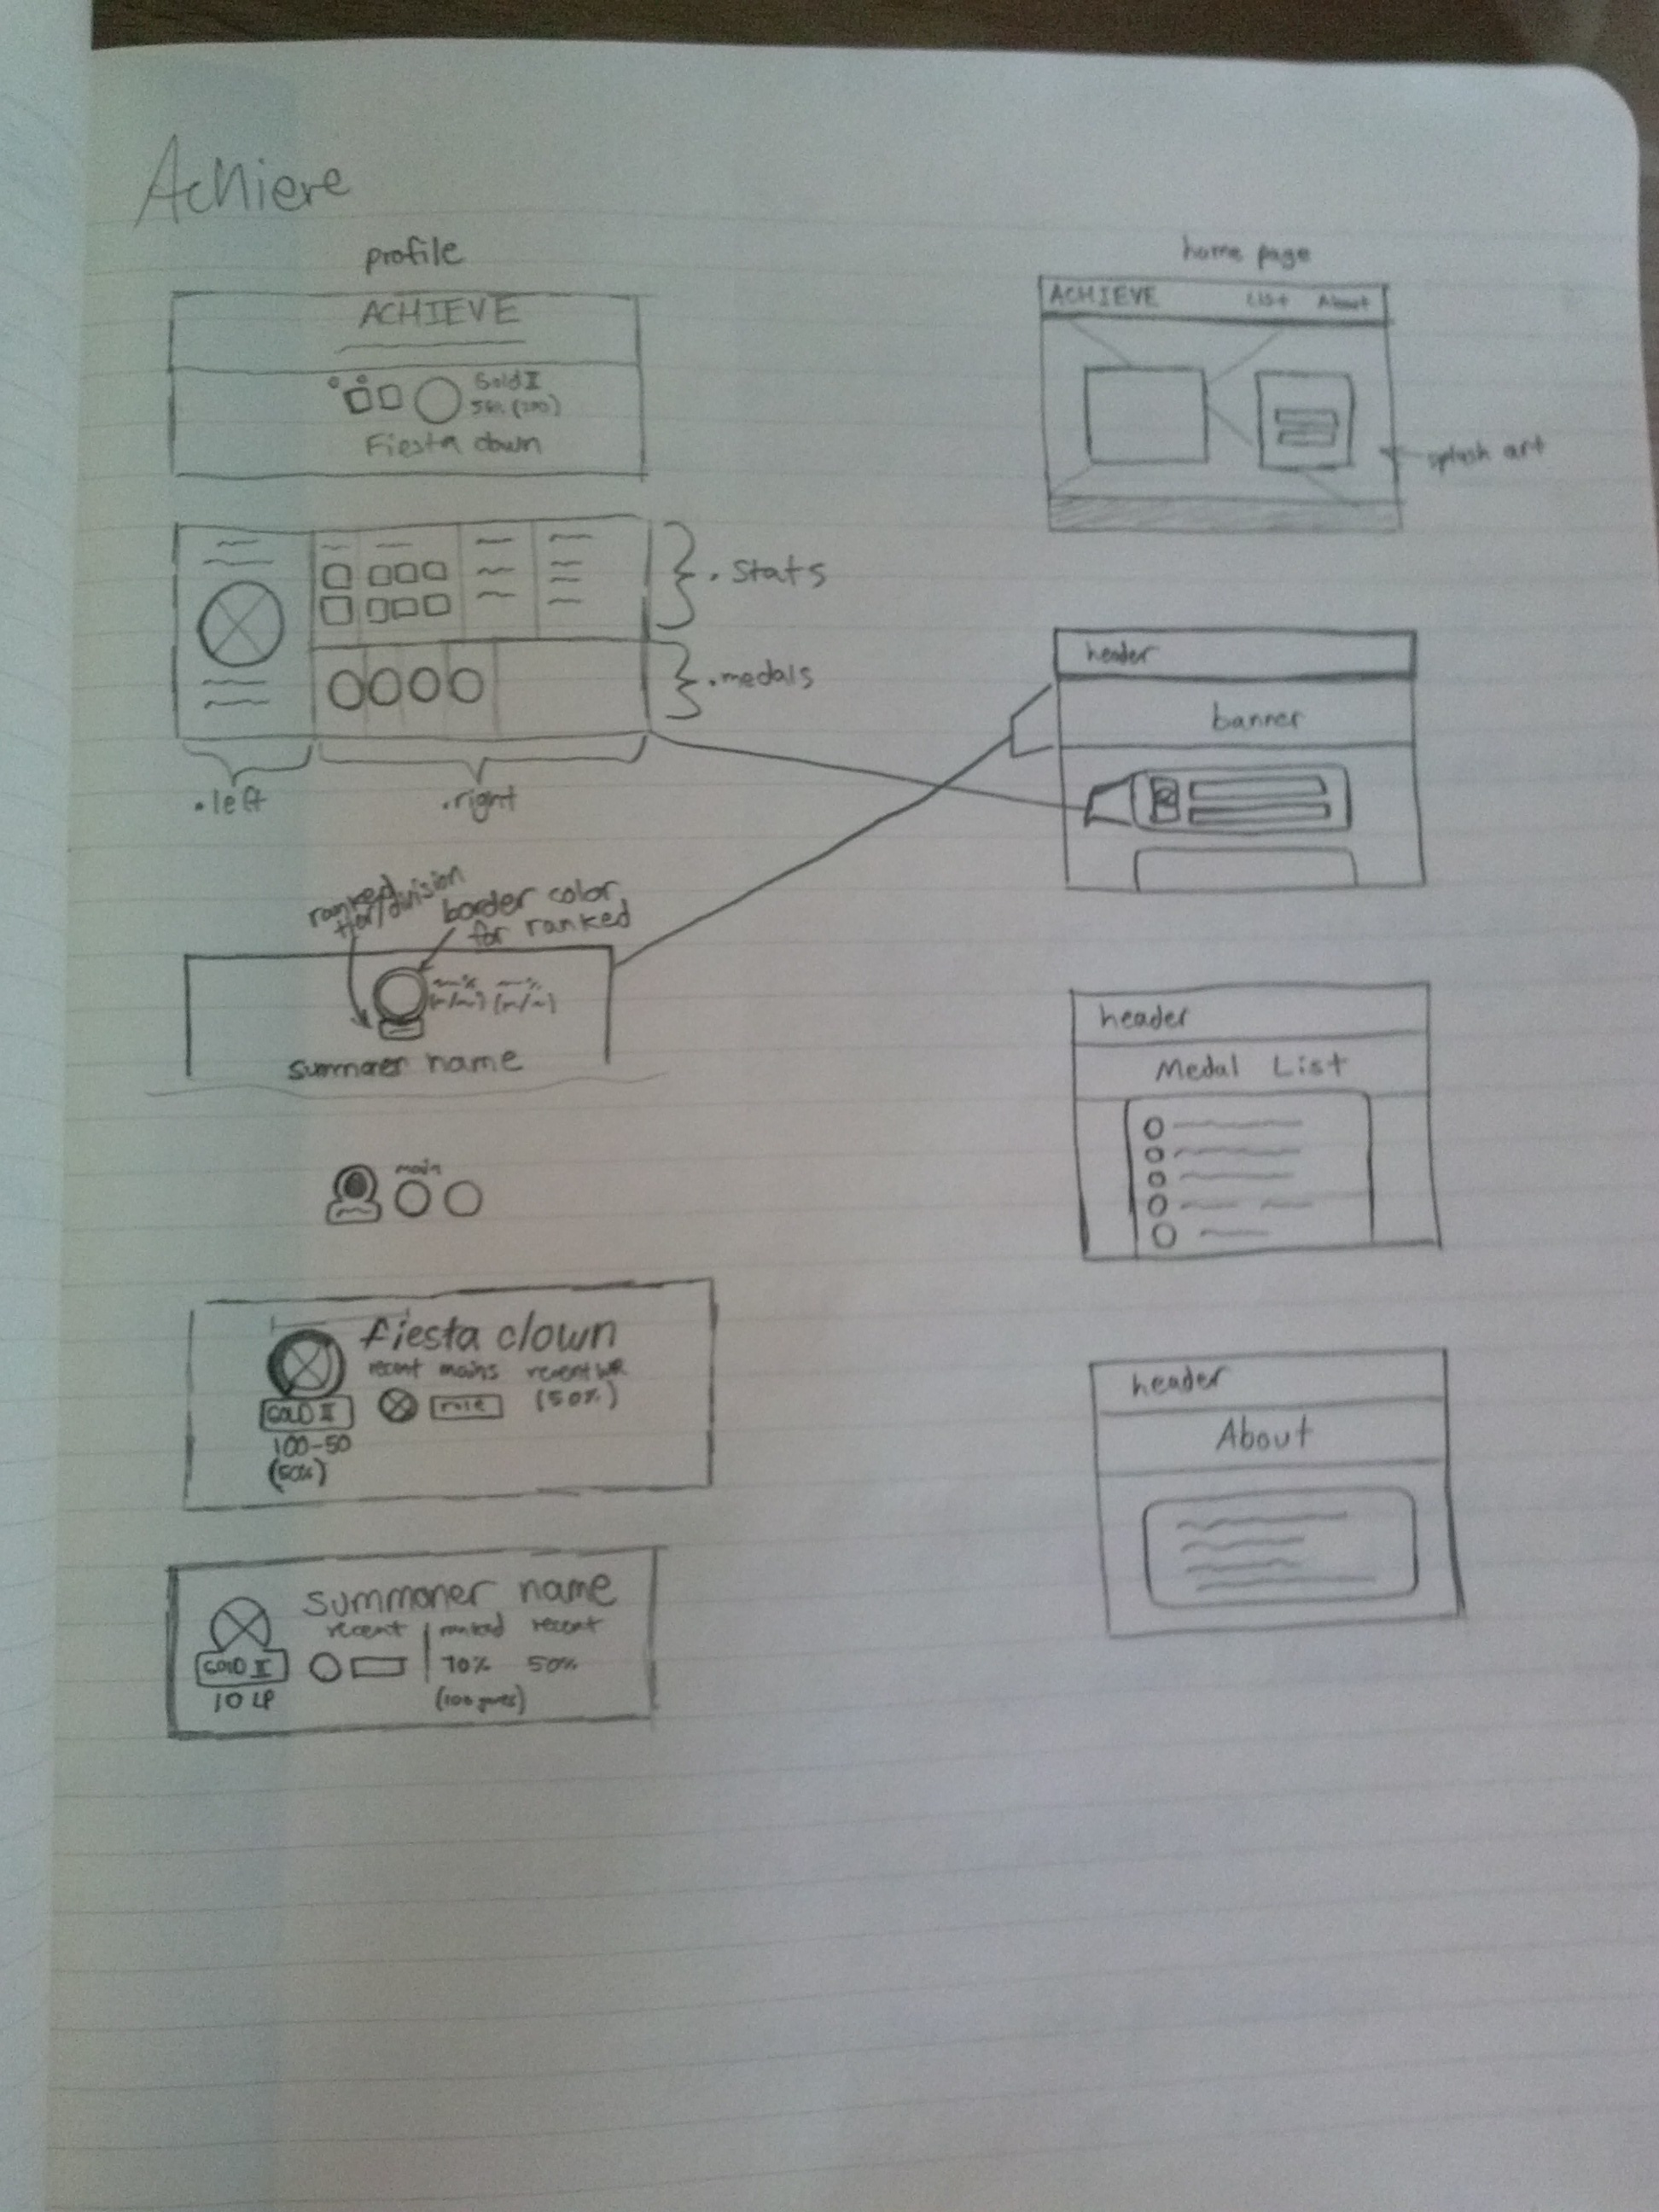 Achieve
profile
ACHIEVE
Gold II
Fiesta clown
.stats
.medals
.left
.right
ranked
tier/division
border color
for ranked
summoner name
main
fiesta clown
recent mains
recent WR
role
(50%)
GOLD II
100-50
(50%)
summoner name
recent
ranked
recent
GOLD II
70%
50%
10 LP
(100 games)
home page
ACHIEVE
List
About
splash art
header
banner
header
Medal List
header
About